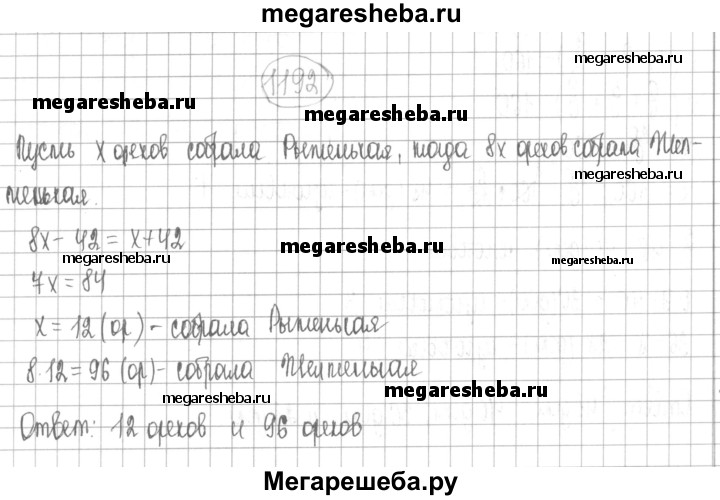 megaresheba.ru
megaresheba.ru
1192
megaresheba.ru
megaresheba.ru
Пусть х орехов собрала Рыженькая, тогда 8х орехов собрала Жел-
megaresheba.ru
тенькая.
8х - 42 = х + 42
megaresheba.ru
megaresheba.ru
megaresheba.ru
7х = 84
х = 12 (ор) - собрала Рыженькая
8·12 = 96 (ор) - собрала Желтенькая
megaresheba.ru
megaresheba.ru
Ответ: 12 орехов и 96 орехов
Мегарешеба.ру